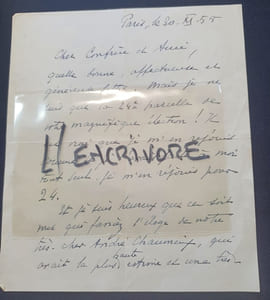 Paris, le 20. XI 55
Cher Confrère et Ami,
quelle bonne, affectueuse et
généreuse lettre. Mais je ne
suis que la 24e parcelle de
votre magnifique élection ! Je
que je m'en réjouis
L'ENCRIVORE
moi
tout seul, je m'en réjouis pour
24.
Et je suis heureux que ce soit
vous qui fassiez l'éloge de notre
très cher André Chaumeix, qui
avait la plus haute estime et une très